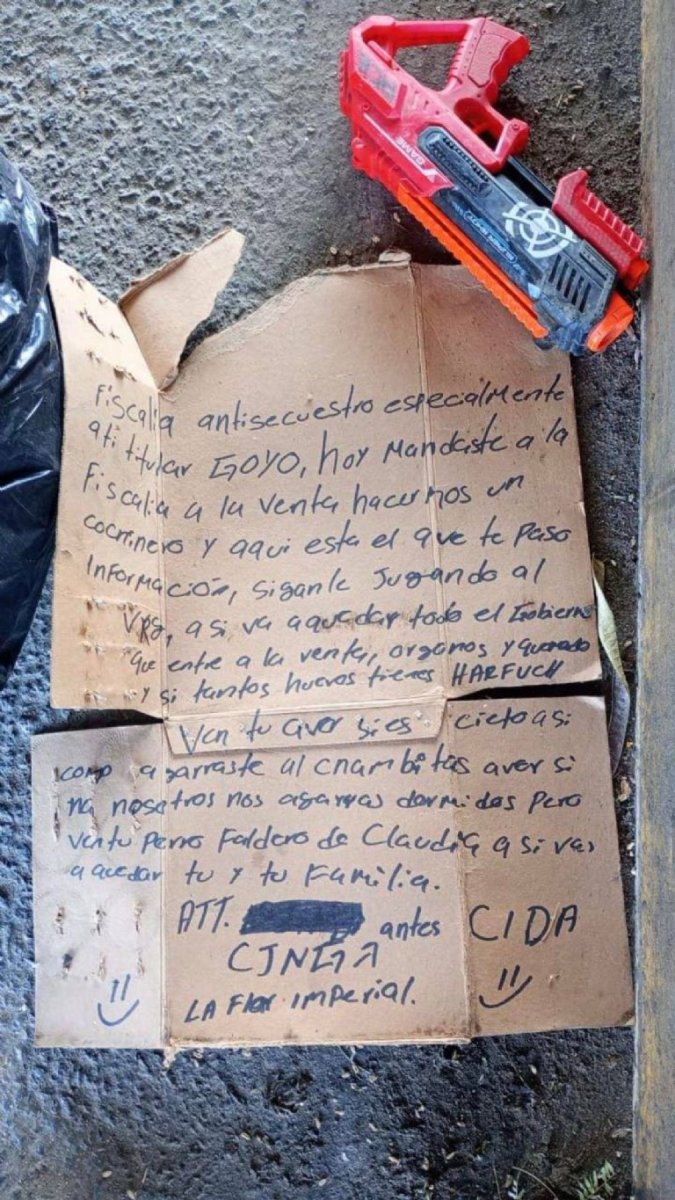 GAME
Fiscalia antisecuestro especialmente
ati titular GOYO, hoy Mandaste a la
Fiscalia a la venta hacernos un
cocninero y aqui esta el que te Paso
Información, siganle Jugando al
VRg, a si va aquedar todo el Gobierno
que entre a la venta, organos y
y si tantos huevos tienes HARFUCH
Ven tu aver si es cieto asi
como agarraste al chambitas aver si
na nosotros nos agarras dormidos Pero
ven tu Perro Faldero de Claudia a si vas
a quedar tu y tu Familia.
ATT. antes CIDA
CJNGA
LA Flor IMPerial.